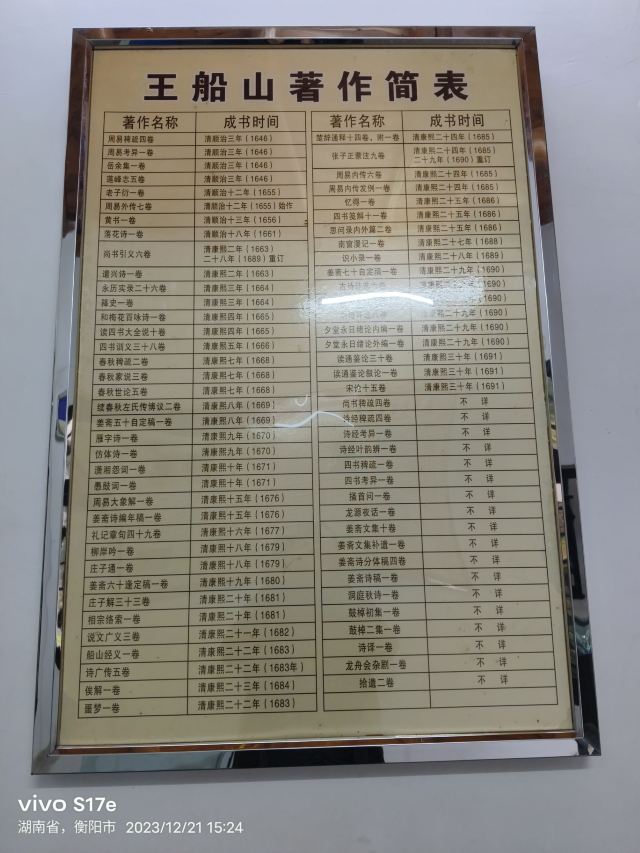 王船山著作简表
著作名称 成书时间
周易稗疏四卷 清顺治三年(1646)
周易考异一卷 清顺治三年(1646)
岳余集一卷 清顺治三年(1646)
莲峰志五卷 清顺治三年(1646)
老子衍一卷 清顺治十二年(1655)
周易外传七卷 清顺治十二年(1655)始作
黄书一卷 清顺治十三年(1656)
落花诗一卷 清顺治十八年(1661)
尚书引义六卷 清康熙二年(1663)
二十八年(1689)重订
遣兴诗一卷 清康熙二年(1663)
永历实录二十六卷 清康熙三年(1664)
箨史一卷 清康熙三年(1664)
和梅花百咏诗一卷 清康熙四年(1665)
读四书大全说十卷 清康熙四年(1665)
四书训义三十八卷 清康熙四年(1665)
春秋稗疏二卷 清康熙七年(1668)
春秋家说三卷 清康熙七年(1668)
春秋世论五卷 清康熙七年(1668)
续春秋左氏传博议二卷 清康熙八年(1669)
姜斋五十自定稿一卷 清康熙八年(1669)
雁字诗一卷 清康熙九年(1670)
仿体诗一卷 清康熙九年(1670)
潇湘怨词一卷 清康熙十年(1671)
愚鼓词一卷 清康熙十年(1671)
周易大象解一卷 清康熙十五年(1676)
姜斋诗编年稿一卷 清康熙十五年(1676)
礼记章句四十九卷 清康熙十六年(1677)
柳岸吟一卷 清康熙十八年(1679)
庄子通一卷 清康熙十八年(1679)
姜斋六十逢定稿一卷 清康熙十九年(1680)
庄子解三十三卷 清康熙二十年(1681)
相宗络索一卷 清康熙二十年(1681)
说文广义三卷 清康熙二十一年(1682)
船山经义一卷 清康熙二十二年(1683)
诗广传五卷 清康熙二十二年(1683年)
俟解一卷 清康熙二十三年(1684)
噩梦一卷 清康熙二十二年(1683)
著作名称 成书时间
楚辞通释十四卷，附一卷 清康熙二十四年(1685)
张子正蒙注九卷 清康熙二十四年(1685)
二十九年(1690)重订
周易内传六卷 清康熙二十四年(1685)
周易内传发例一卷 清康熙二十四年(1685)
忆得一卷 清康熙二十五年(1686)
四书笺解十一卷 清康熙二十五年(1686)
思问录内外篇二卷 清康熙二十五年(1686)
南窗漫记一卷 清康熙二十七年(1688)
识小录一卷 清康熙二十八年(1689)
姜斋七十自定稿一卷 清康熙二十九年(1690)
清康熙二十九年(1690)
(1690)
清康熙二十九年(1690)
夕堂永日绪论内编一卷 清康熙二十九年(1690)
夕堂永日绪论外编一卷 清康熙二十九年(1690)
读通鉴论三十卷 清康熙三十年(1691)
读通鉴论叙论一卷 清康熙三十年(1691)
宋论十五卷 清康熙三十年(1691)
尚书稗疏四卷 不详
诗经稗疏四卷 不详
诗经考异一卷 不详
诗经叶韵辨一卷 不详
四书稗疏一卷 不详
四书考异一卷 不详
搔首问一卷 不详
龙源夜话一卷 不详
姜斋文集十卷 不详
姜斋文集补遗一卷 不详
姜斋诗分体稿四卷 不详
姜斋诗稿一卷 不详
洞庭秋诗一卷 不详
鼓棹初集一卷 不详
鼓棹二集一卷 不详
诗译一卷 不详
龙舟会杂剧一卷 不详
拾遗二卷 不详
vivo S17e
湖南省，衡阳市 2023/12/21 15:24